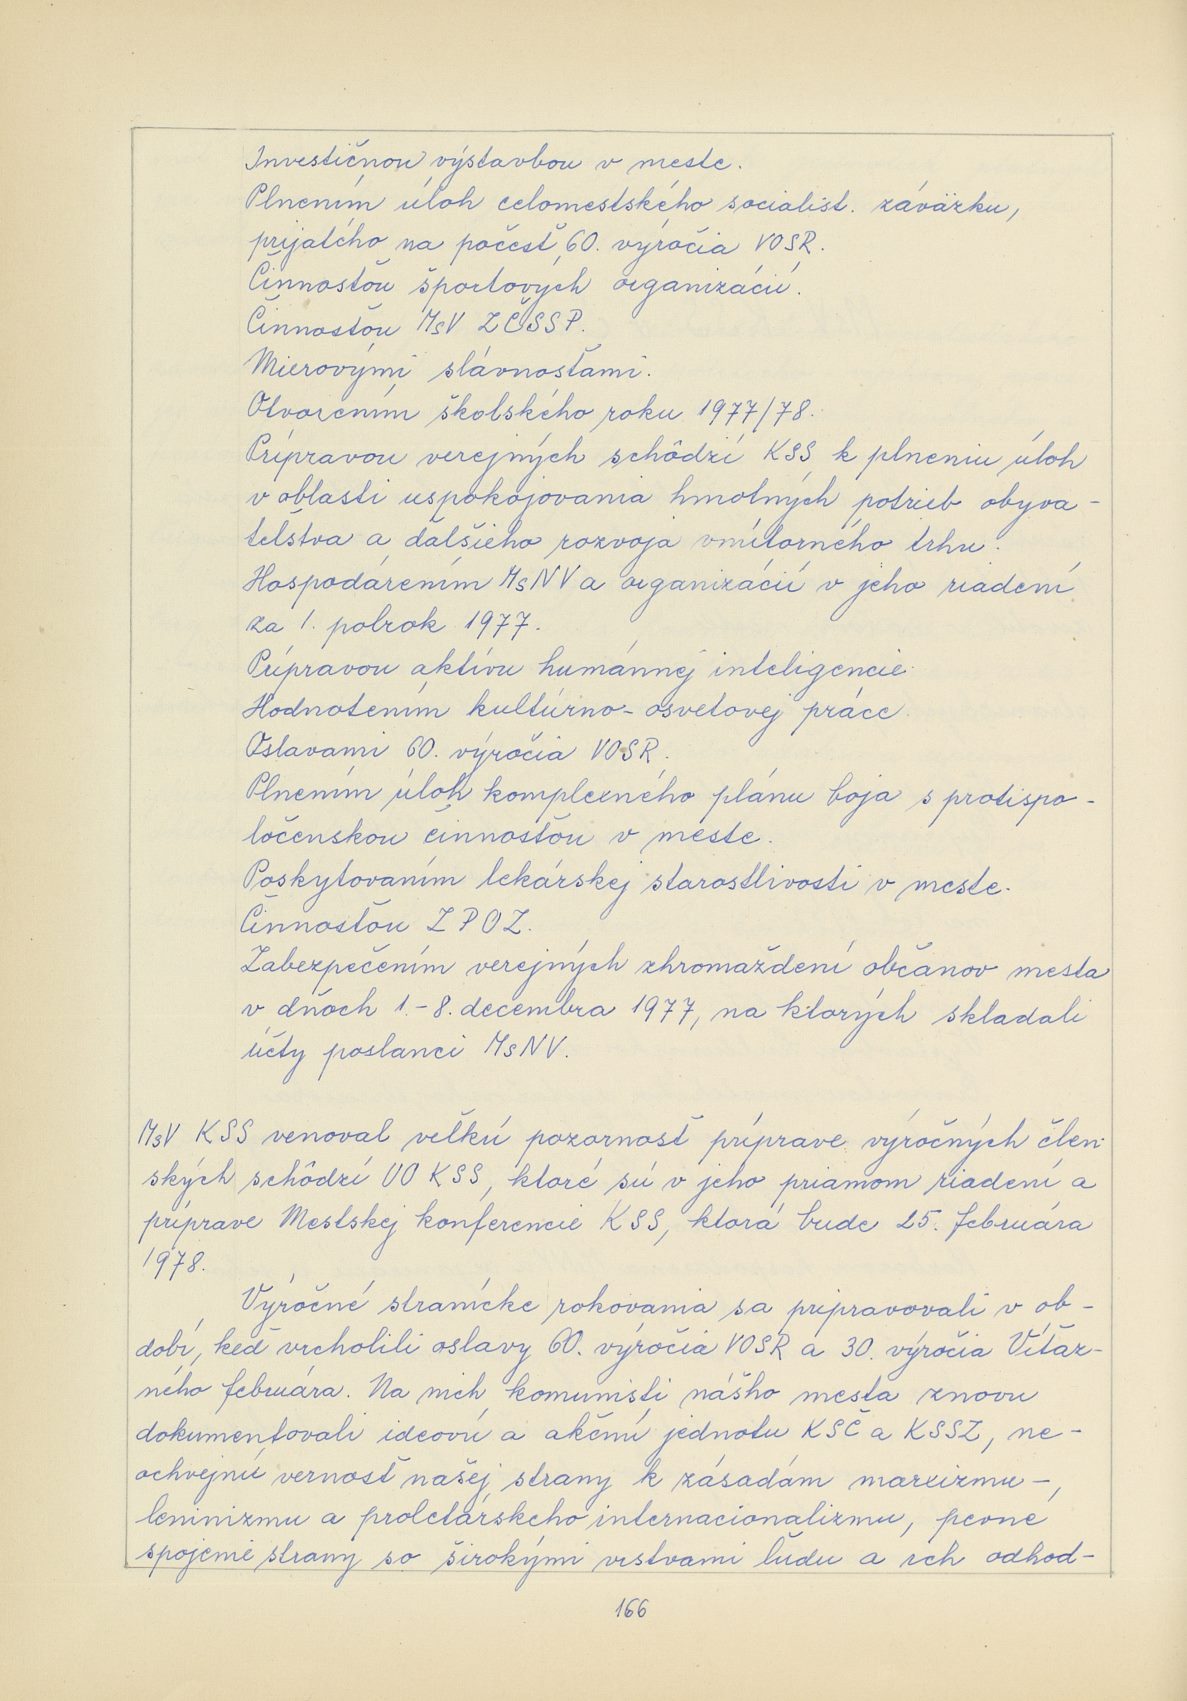 Investičnou výstavbou v meste.
Plnením úloh celomestského socialist. záväzku,
prijatého na počesť 60. výročia VOSR.
Činnosťou športových organizácií.
Činnosťou MsV ZČSSP.
Mierovými slávnosťami.
Otvorením školského roku 1977/78.
Prípravou verejných schôdzí KSS k plneniu úloh
v oblasti uspokojovania hmotných potrieb obyva-
teľstva a ďalšieho rozvoja vnútorného trhu.
Hospodárením MsNV a organizácií v jeho riadení
za 1. polrok 1977.
Prípravou aktívu humánnej inteligencie.
Hodnotením kultúrno-osvetovej práce.
Oslavami 60. výročia VOSR.
Plnením úloh komplexného plánu boja s protispo-
ločenskou činnosťou v meste.
Poskytovaním lekárskej starostlivosti v meste.
Činnosťou ZPOZ.
Zabezpečením verejných zhromaždení občanov mesta
v dňoch 1.-8. decembra 1977, na ktorých skladali
účty poslanci MsNV.
MsV KSS venoval veľkú pozornosť príprave výročných člen-
ských schôdzí UO KSS, ktoré sú v jeho priamom riadení a
príprave Mestskej konferencie KSS, ktorá bude 25. februára
1978.
Výročné stranícke rokovania sa pripravovali v ob-
dobí, keď vrcholili oslavy 60. výročia VOSR a 30. výročia Víťaz-
ného februára. Na nich komunisti nášho mesta znovu
dokumentovali ideovú a akčnú jednotu KSČ a KSSZ, ne-
ochvejnú vernosť našej strany k zásadám marxizmu-,
leninizmu a proletárskeho internacionalizmu, pevne
spojenie strany so širokými vrstvami ľudu a ich odhod-
166